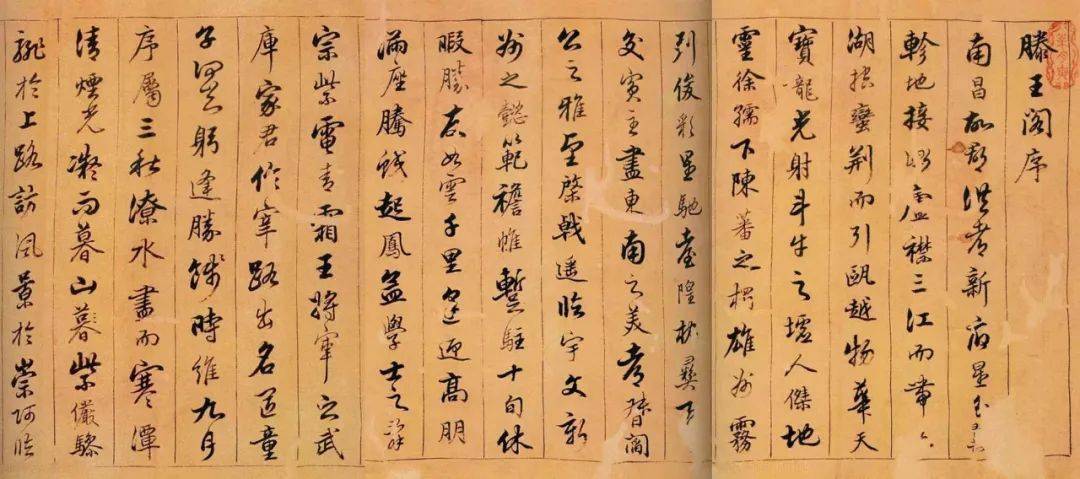 滕王阁序
南昌故郡洪都新府星分翼
軫地接衡廬襟三江而帶
湖控蠻荆而引甌越物華天
寶龍光射斗牛之墟人傑地
靈徐孺下陳蕃之榻雄州霧
列俊彩星馳臺隍枕彝
交賓主盡東南之美都督閻
公之雅望棨戟遥临宇文新
州之懿範襜帷暫駐十旬休
暇勝友如雲千里逢迎高朋
滿座騰蛟起鳳孟學士之詞
宗紫電青霜王將軍之武
庫家君作宰路出名區童
子何知躬逢勝餞時維九月
序屬三秋潦水盡而寒潭
清煙光凝而暮山暮紫儼驂
騑於上路訪風景於崇阿临